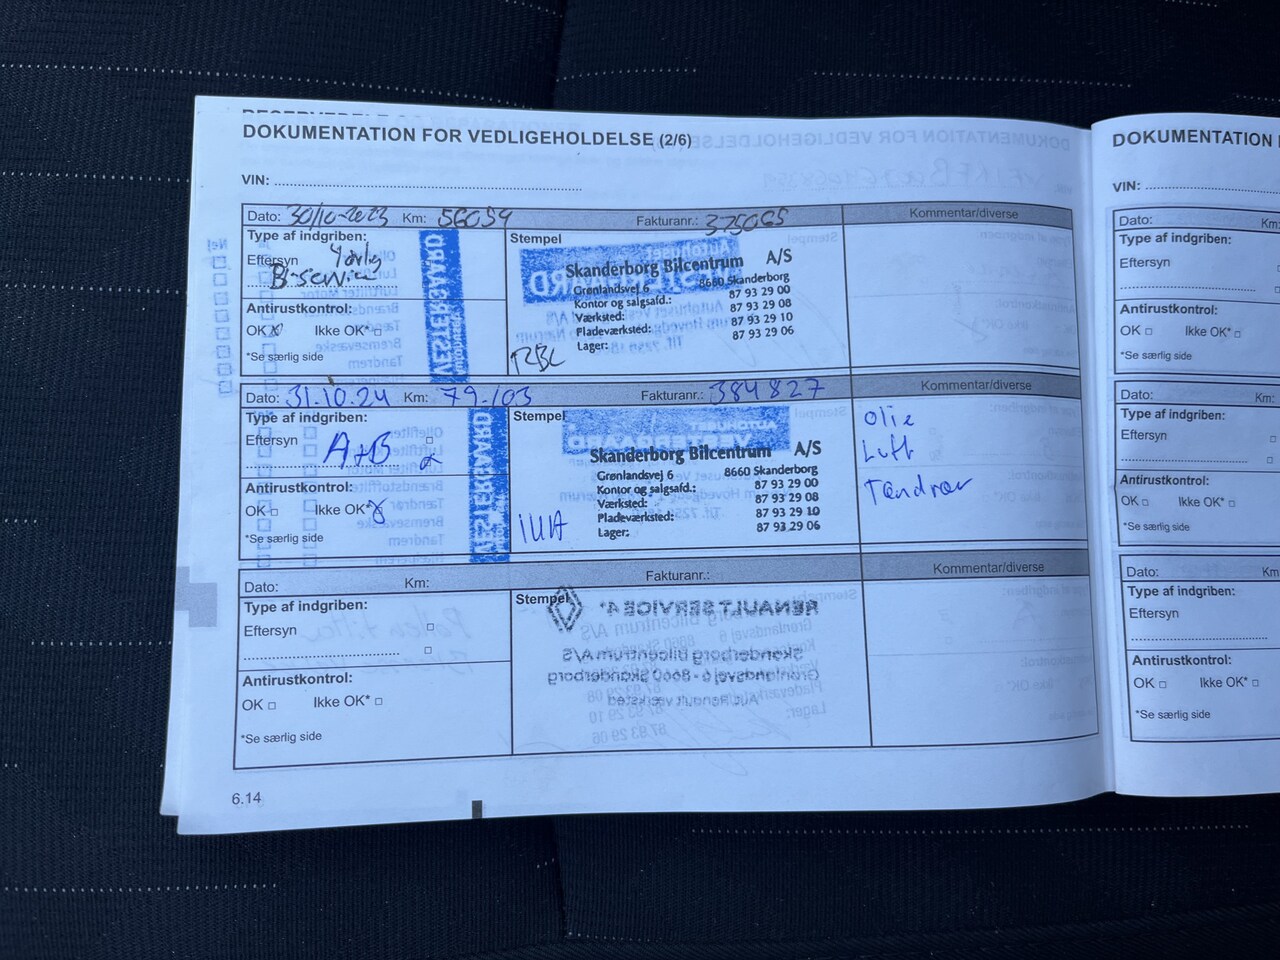 DOKUMENTATION FOR VEDLIGEHOLDELSE (2/6)
VIN:
Dato: 30/10-2023 Km: 56059 Fakturanr.: 375065 Kommentar/diverse
Type af indgriben:
Eftersyn Yärlig
B-service
Antirustkontrol:
OK X Ikke OK* □
*Se særlig side
Stempel
Skanderborg Bilcentrum A/S
Grønlandsvej 6 8660 Skanderborg
Kontor og salgsafd.: 87 93 29 00
Værksted: 87 93 29 08
Pladeværksted: 87 93 29 10
Lager: 87 93 29 06
VESTERGAARD
Dato: 31.10.24 Km: 79.103 Fakturanr.: 384827 Kommentar/diverse
Type af indgriben:
Eftersyn A+B □
Antirustkontrol:
OK □ Ikke OK* X
*Se særlig side
Stempel
Skanderborg Bilcentrum A/S
Grønlandsvej 6 8660 Skanderborg
Kontor og salgsafd.: 87 93 29 00
Værksted: 87 93 29 08
Pladeværksted: 87 93 29 10
Lager: 87 93 29 06
VESTERGAARD
Olie
Luft
Tændrør
Dato: Km: Fakturanr.: Kommentar/diverse
Type af indgriben:
Eftersyn □
□
Antirustkontrol:
OK □ Ikke OK* □
*Se særlig side
Stempel
RENAULT SERVICE
Skanderborg bilcentrum A/S
Grønlandsvej 6 - 8660 Skanderborg
Aut. Renault værksted
6.14
DOKUMENTATION
VIN:
Dato:
Type af indgriben:
Eftersyn
Antirustkontrol:
OK □ Ikke OK* □
*Se særlig side
Dato:
Type af indgriben:
Eftersyn
Antirustkontrol:
OK □ Ikke OK* □
*Se særlig side
Dato:
Type af indgriben:
Eftersyn
Antirustkontrol:
OK □ Ikke OK* □
*Se særlig side